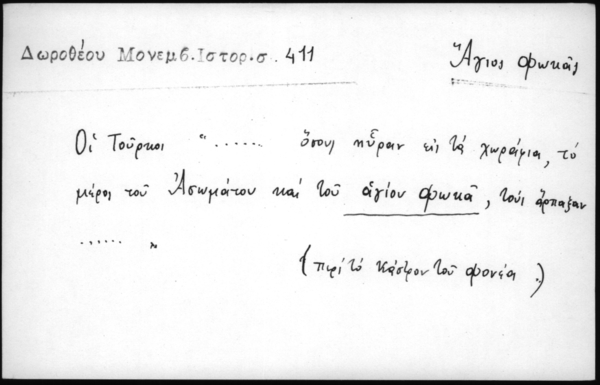 Δωροθέου Μονεμβ.Ιστορ.σ. 411
Ἅγιος Φωκᾶς
Οἱ Τοῦρκοι "...... ὅσους ηὗραν εἰς τὰ χωράφια, τὸ
μέρος τοῦ Ἀσωμάτου καὶ τοῦ ἁγίου Φωκᾶ, τοὺς ἅρπαξαν
...... "
(περὶ τὸ κάστρον τοῦ Φονέα.)